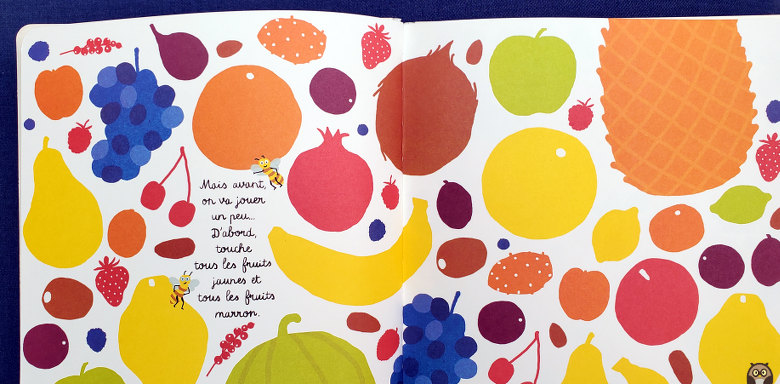 Mais avant,
on va jouer
un peu...
D'abord,
touche
tous les fruits
jaunes et
tous les fruits
marron.